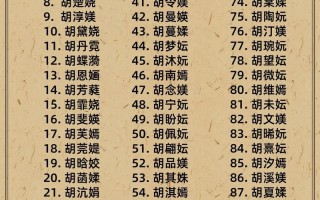 8. 胡楚娆 41. 胡令媄 74. 胡葉媃
9. 胡淳媄 42. 胡曼媄 75. 胡陶妧
10. 胡黛娆 43. 胡蔓媃 76. 胡汀媄
11. 胡丹霓 44. 胡梦妘 77. 胡琬妧
12. 胡蝶蕍 45. 胡沐妧 78. 胡望妘
13. 胡恩婳 46. 胡南嫣 79. 胡微妘
14. 胡芳蕤 47. 胡念媄 80. 胡维嫣
15. 胡霏娆 48. 胡宁妘 81. 胡未妘
16. 胡斐媖 49. 胡盼妧 82. 胡文媄
17. 胡芙嫣 50. 胡佩妧 83. 胡晞妧
18. 胡莞媞 51. 胡翩妧 84. 胡熹妘
19. 胡晗姣 52. 胡品媄 85. 胡汐嫣
20. 胡菡媃 53. 胡其姝 86. 胡溪媄
21. 胡沆娟 54. 胡淇嫣 87. 胡夏媃